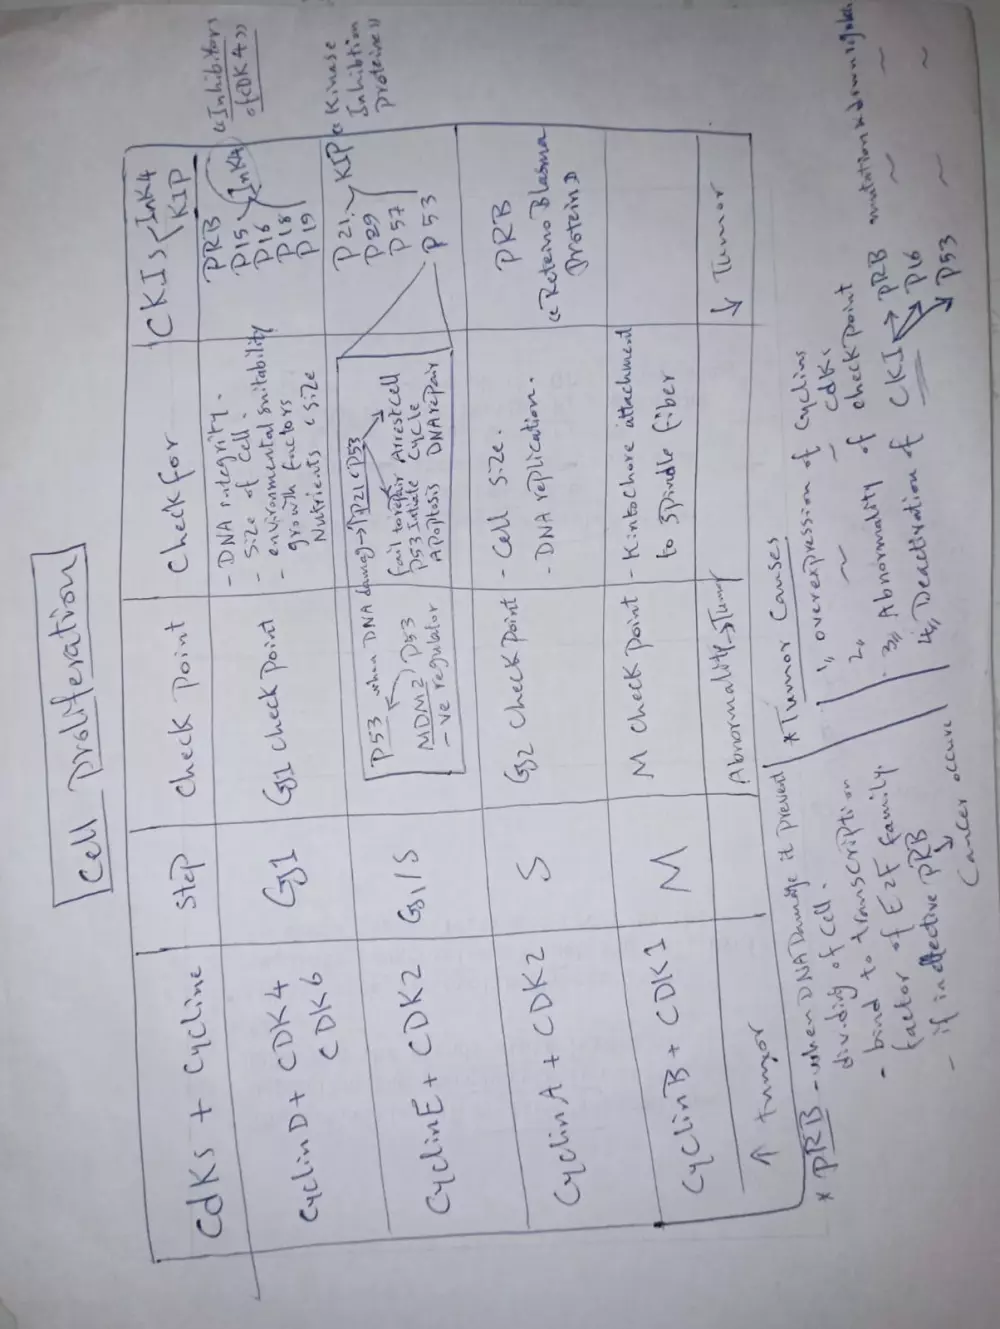 Cell Proliferation
CdKs + Cycline
Step
Check Point
Check for
CKIs InK4
KIP
CyclinD + CDK4
CDK6
G1
G1 Check Point
- DNA integrity.
- Size of Cell.
- environmental suitability
growth factors
Nutrients, size
PRB
P15
P16
P18
P19
InK4
"Inhibitors
of CDK4"
CyclinE + CDK2
G1/S
P53 when DNA damag → ↑P21 P53
MDM2 P53
-ve regulator
fail to repair
P53 Intiate
Apoptosis
Arrest cell
Cycle
DNA repair
P21
P29
P57
P53
KIP
"Kinase
Inhibtion
Proteins"
CyclinA + CDK2
S
G2 Check Point
- Cell Size.
- DNA replication.
PRB
"Reteino Blasma
Protein"
CyclinB + CDK1
M
M Check Point
- Kintochore attachment
to Spindle fiber
↑ tumor
Abnormality → Tumor
↓ Tumor
* PRB - when DNA Damage it prevent
dividig of cell.
- bind to transcription
factor of E2F family.
- if ineffective PRB
↓
Cancer occure
* Tumor Causes
1,, overexpression of Cyclins
2,, ~ ~ CdKs
3,, Abnormality of checkpoint
4,, Deactivation of CKI → PRB mutation
P16 ~ ~
P53 ~ ~